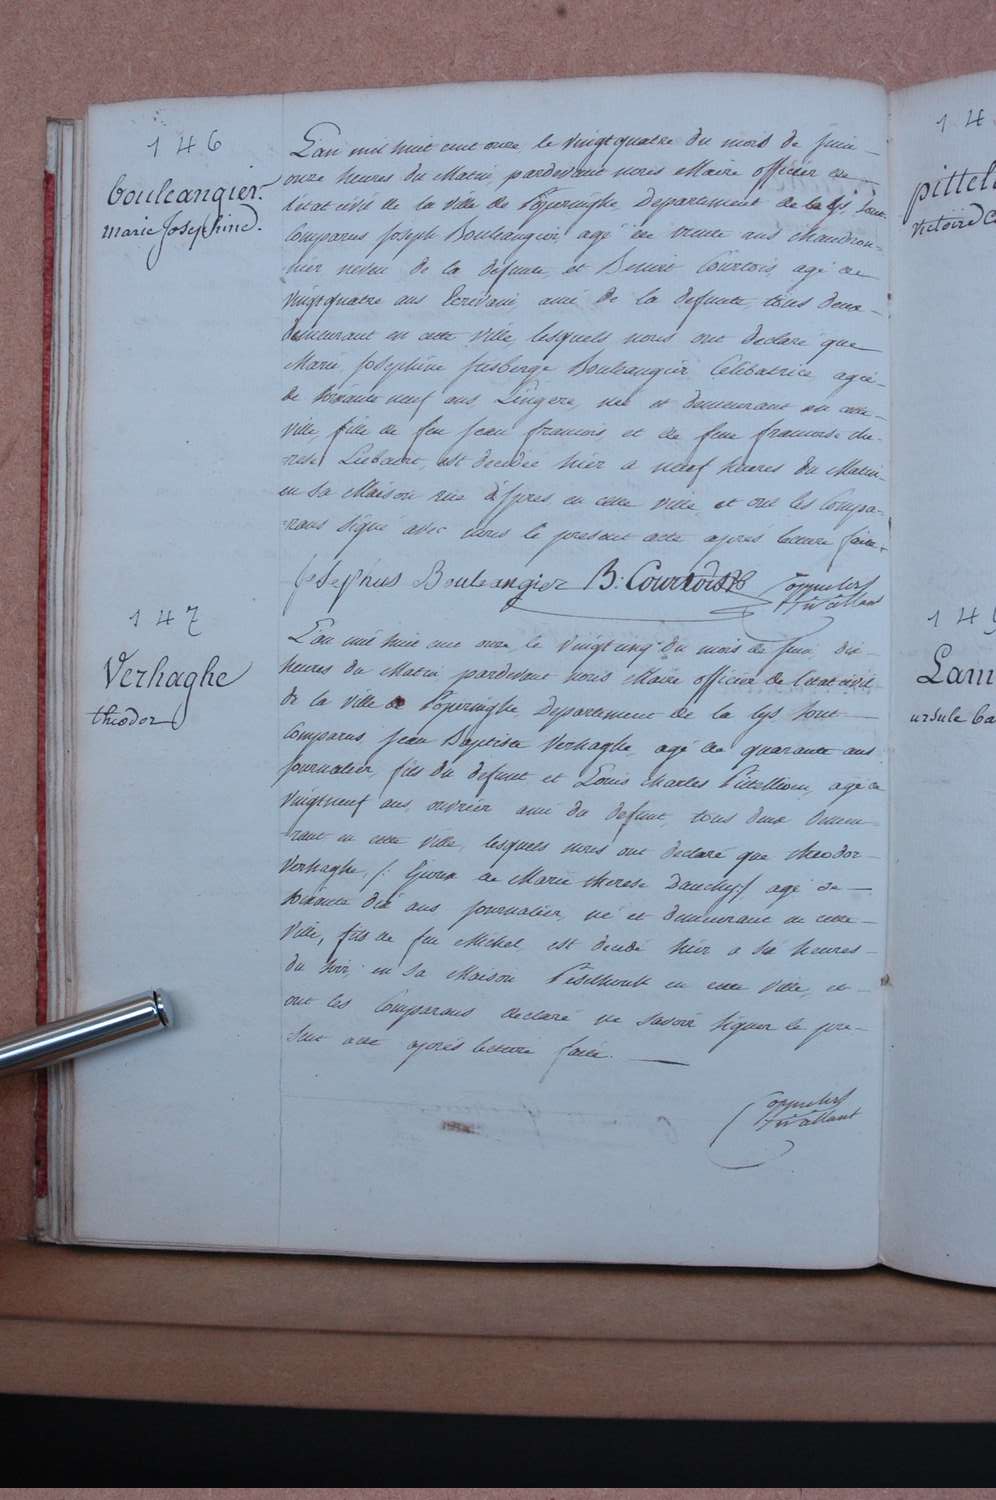 146
bouleangier.
marie Josephine.
L'an mil huit cent onze, le vingtquatre du mois de juin
onze heures du Matin, pardevant nous Maire officier de
l'état civil de la ville de Poperinghe Departement de la Lys, sont
Comparus Joseph Bouleangier, agé de trente ans Chaudron-
nier neveu de la défunte, et Benoit Courtois agé de
vingtquatre ans Ecrivain, ami de la defunte, tous deux
demeurant en cette ville, lesquels nous ont declaré que
Marie Josephine Bouleangier Celibatrice, agée
de soixante neuf ans Lingere, née et demeurant en cette
ville, fille de feu Jean francois, et de feue francoise the-
rese Liebaert, est decedée hier a neuf heures du Matin
en sa Maison rue d'Ypres, en cette ville, et ont les Compa-
rans signé avec nous le present acte après lecture faite.
Josephus Bouleangier B: Courtois
147
Verhaghe
theodor
L'an mil huit cent onze, le vingtcinq du mois de Juin, dix
heures du Matin pardevant nous Maire officier de l'etat civil
de la ville de Poperinghe Departement de la Lys sont
Comparus, Jean Baptiste Verhaghe, agé de quarante ans
journalier, fils du defunt, et Louis Charles Pittellioen, agé de
vingtneuf ans, ouvrier ami du defunt, tous deux demeu-
rant en cette ville, lesquels nous ont declaré que theodor
Verhaghe, /: Epoux de Marie therese Dauchy:/ agé de
soixante dix ans journalier, né et demeurant en cette
ville, fils de feu Michel est decedé hier a six heures
du soir en sa Maison en cette ville, et
ont les Comparans declaré ne savoir signer le pre-
sent acte après lecture faite.
14
pittel
victoire
14
Lam
ursule ba